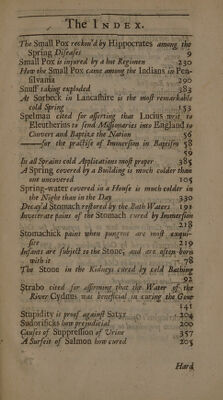 The INDEX.
The Small Pox reckon'd by Hippocrates among the
Spring Diseases 9
Small Pox is injured by a hot Regimen 230
How the Small Pox came among the Indians in Pen-
silvania 290
Snuff taking exploded 383
At Sorbeck in Lancashire is the most remarkable
cold Spring 153
Spelman cited for asserting that Lucius writ to
Eleutherius to send Missionaries into England to
Convert and Baptize the Nation 56
——for the practise of Immersion in Baptism 58
59
In all Sprains cold Applications most proper 385
A Spring covered by a Building is much colder than
one uncovered 105
Spring-water covered in a House is much colder in
the Night than in the Day 330
Decay'd Stomach restored by the Bath Waters 192
Inveterate pains of the Stomach cured by Immersion
218
Stomachick pain when pungent are most exqui-
site 219
Infants are subject to the Stone, and are often born
with it 78
The Stone in the Kidneys cured by cold Bathing
92
Strabo cited for affirming that the Water of the
River Cydnus was beneficial in curing the Gout
141
Stupidity is proof against Satyr 204
Sudorificks how prejudicial 200
Causes of Suppression of Urine 357
A Surfeit of Salmon how cured 205
Hard